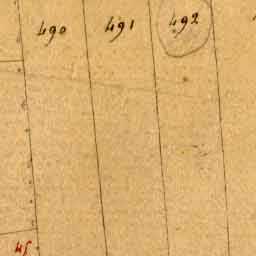 490 491 492
45